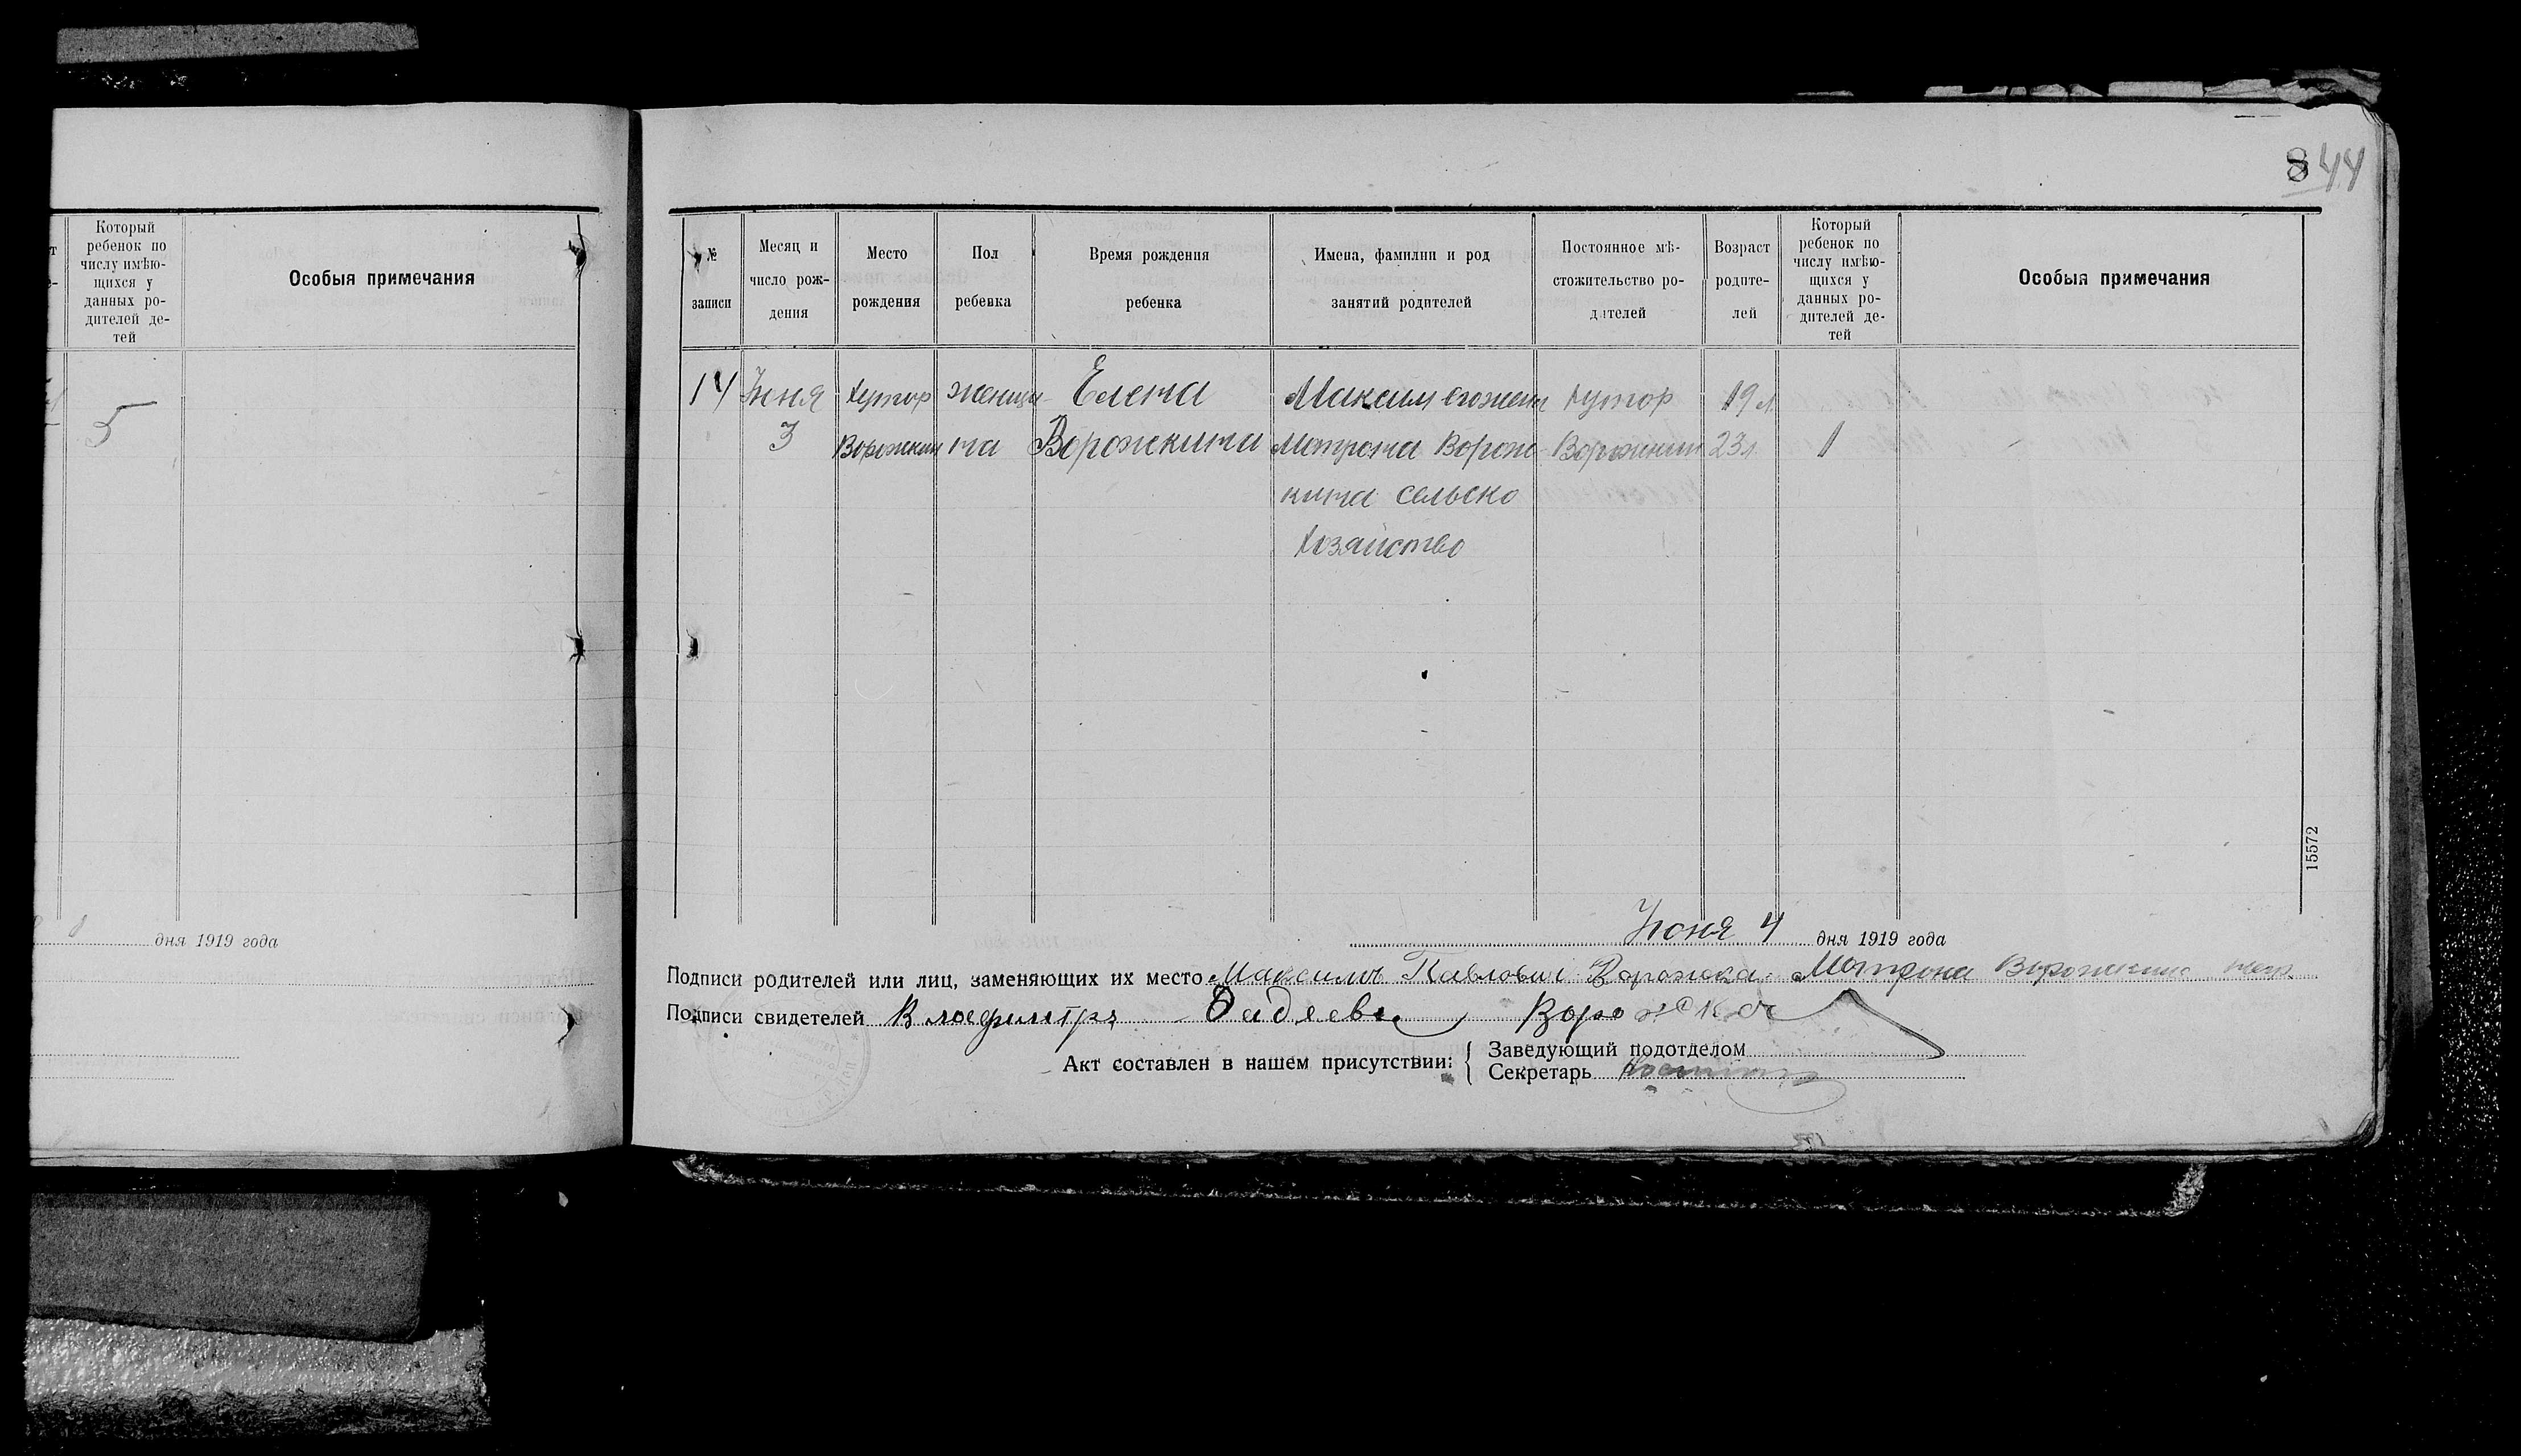 8 44
Который
ребенок по
числу имѣю-
щихся у
данных ро-
дителей де-
тей
Особыя примечания
5
дня 1919 года
№
записи
Месяц и
число рож-
дения
Место
рождения
Пол
ребенка
Время рождения
ребенка
Имена, фамилии и род
занятий родителей
Постоянное мѣ-
стожительство ро-
дителей
Возраст
родите-
лей
Который
ребенок по
числу имѣю-
щихся у
данных ро-
дителей де-
тей
Особыя примечания
14 Июня Хутор женщи Елена Максим его жена Хутор 19 л
3 на Ворожкина Матрона Ворож- 23 л 1
кина сельско
хозяйство
15572
Июня 4 дня 1919 года
Подписи родителей или лиц, заменяющих их место Максимъ Павлович Ворожка Матрона Ворожкина
Подписи свидетелей Фадеевъ Ворожка
Акт составлен в нашем присутствии:
Заведующий подотделом
Секретарь